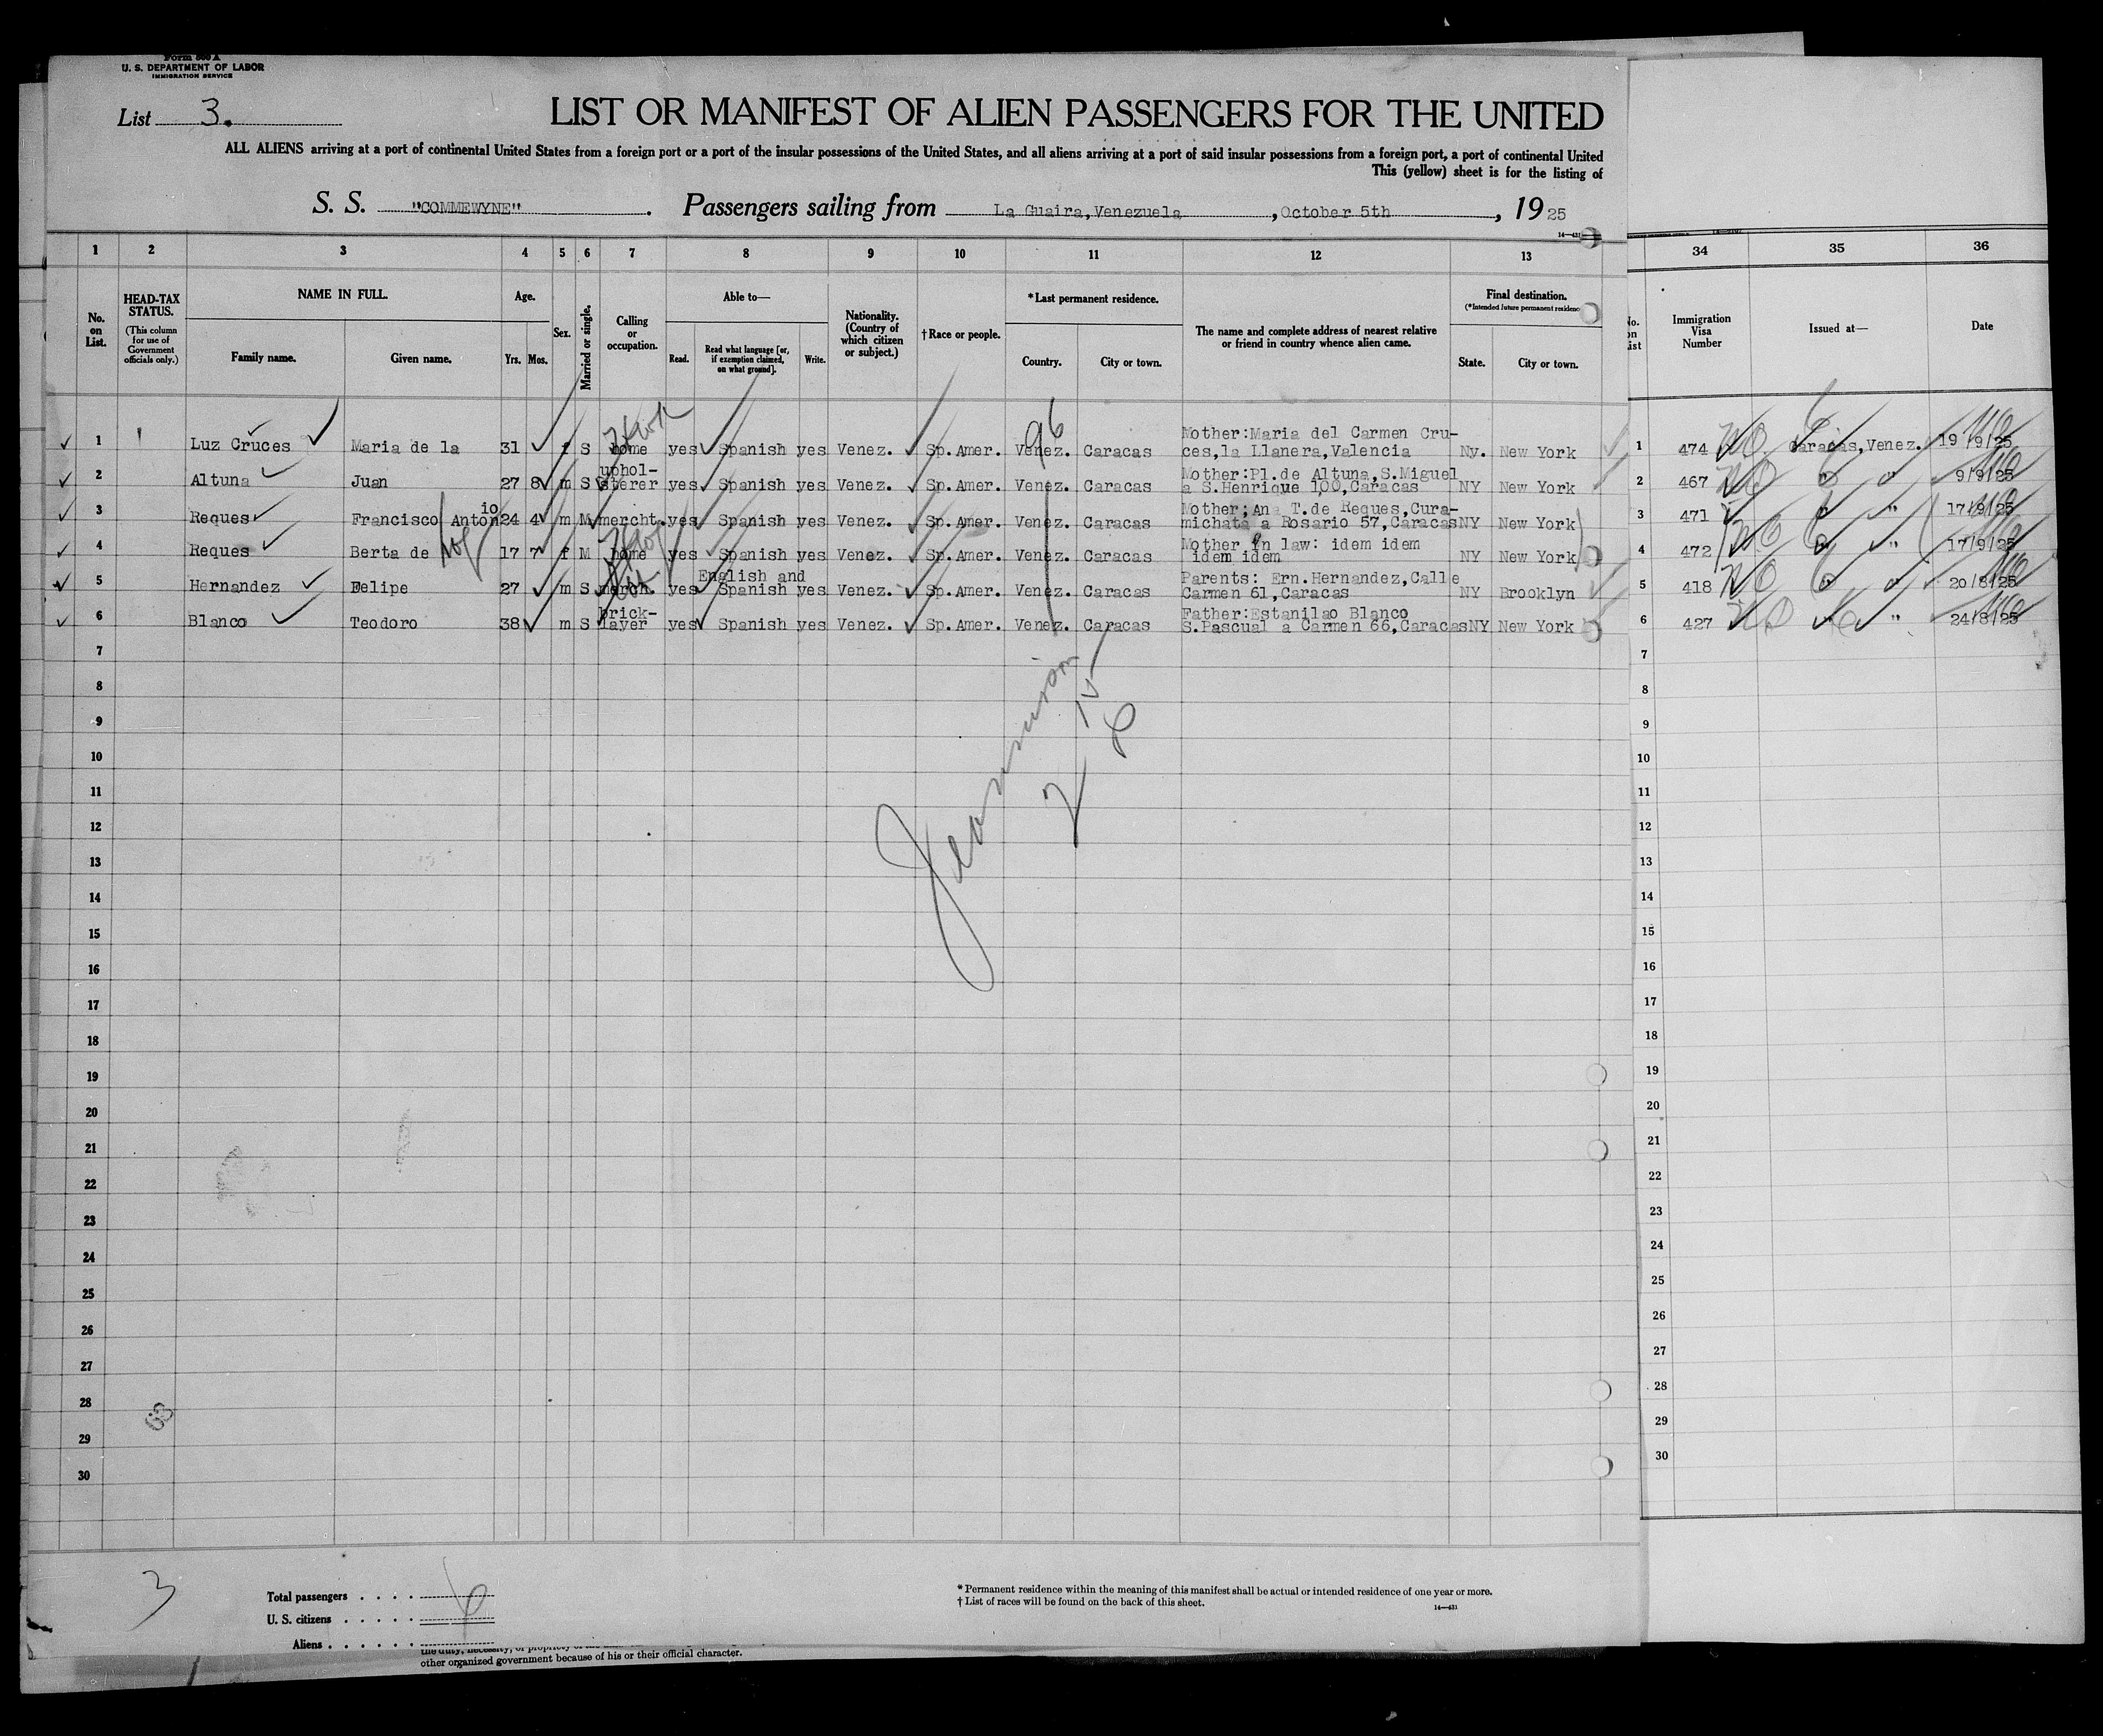 Form 500 A
U. S. DEPARTMENT OF LABOR
IMMIGRATION SERVICE
List 3.
LIST OR MANIFEST OF ALIEN PASSENGERS FOR THE UNITED
ALL ALIENS arriving at a port of continental United States from a foreign port or a port of the insular possessions of the United States, and all aliens arriving at a port of said insular possessions from a foreign port, a port of continental United
This (yellow) sheet is for the listing of
S. S. "COMMEWYNE". Passengers sailing from La Guaira,Venezuela, October 5th, 1925
14—431
1 2 3 4 5 6 7 8 9 10 11 12 13 34 35 36
No. on List.
HEAD-TAX STATUS.
(This column for use of Government officials only.)
NAME IN FULL.
Family name. Given name.
Age.
Yrs. Mos.
Sex.
Married or single.
Calling or occupation.
Able to—
Read. Read what language [or, if exemption claimed, on what ground]. Write.
Nationality. (Country of which citizen or subject.)
†Race or people.
*Last permanent residence.
Country. City or town.
The name and complete address of nearest relative or friend in country whence alien came.
Final destination.
(*Intended future permanent residence
State. City or town.
No. on List
Immigration Visa Number
Issued at—
Date
1 Luz Cruces Maria de la 31 f S home yes Spanish yes Venez. Sp.Amer. Venez. Caracas Mother:Maria del Carmen Cru-
ces,la Llanera,Valencia Ny. New York 1 474 Caracas,Venez. 19/9/25
96
2 Altuna Juan 27 8 m S uphol-
sterer yes Spanish yes Venez. Sp.Amer. Venez. Caracas Mother:Pl.de Altuna,S.Miguel
a S.Henrique 100,Caracas NY New York 2 467 " " 9/9/25
3 Reques Francisco Antonio 24 4 m M mercht. yes Spanish yes Venez. Sp.Amer. Venez. Caracas Mother;Ana T.de Reques,Cura-
michata a Rosario 57,Caracas NY New York 3 471 " " 17/9/25
4 Reques Berta de 17 7 f M home yes Spanish yes Venez. Sp.Amer. Venez. Caracas Mother in law: idem idem
idem idem NY New York 4 472 " " 17/9/25
5 Hernandez Felipe 27 m S merch. yes English and
Spanish yes Venez. Sp.Amer. Venez. Caracas Parents: Ern.Hernandez,Calle
Carmen 61,Caracas NY Brooklyn 5 418 " " 20/8/25
6 Blanco Teodoro 38 m S brick-
layer yes Spanish yes Venez. Sp.Amer. Venez. Caracas Father:Estanilao Blanco
S.Pascual a Carmen 66,Caracas NY New York 6 427 " " 24/8/25
7 7
8 8
9 9
10 10
11 11
12 12
13 13
14 14
15 15
16 16
17 17
18 18
19 19
20 20
21 21
22 22
23 23
24 24
25 25
26 26
27 27
28 28
29 29
30 30
3
Total passengers . . . . 6
U. S. citizens . . . . .
Aliens . . . . . .
* Permanent residence within the meaning of this manifest shall be actual or intended residence of one year or more.
† List of races will be found on the back of this sheet.
14—431
other organized government because of his or their official character.